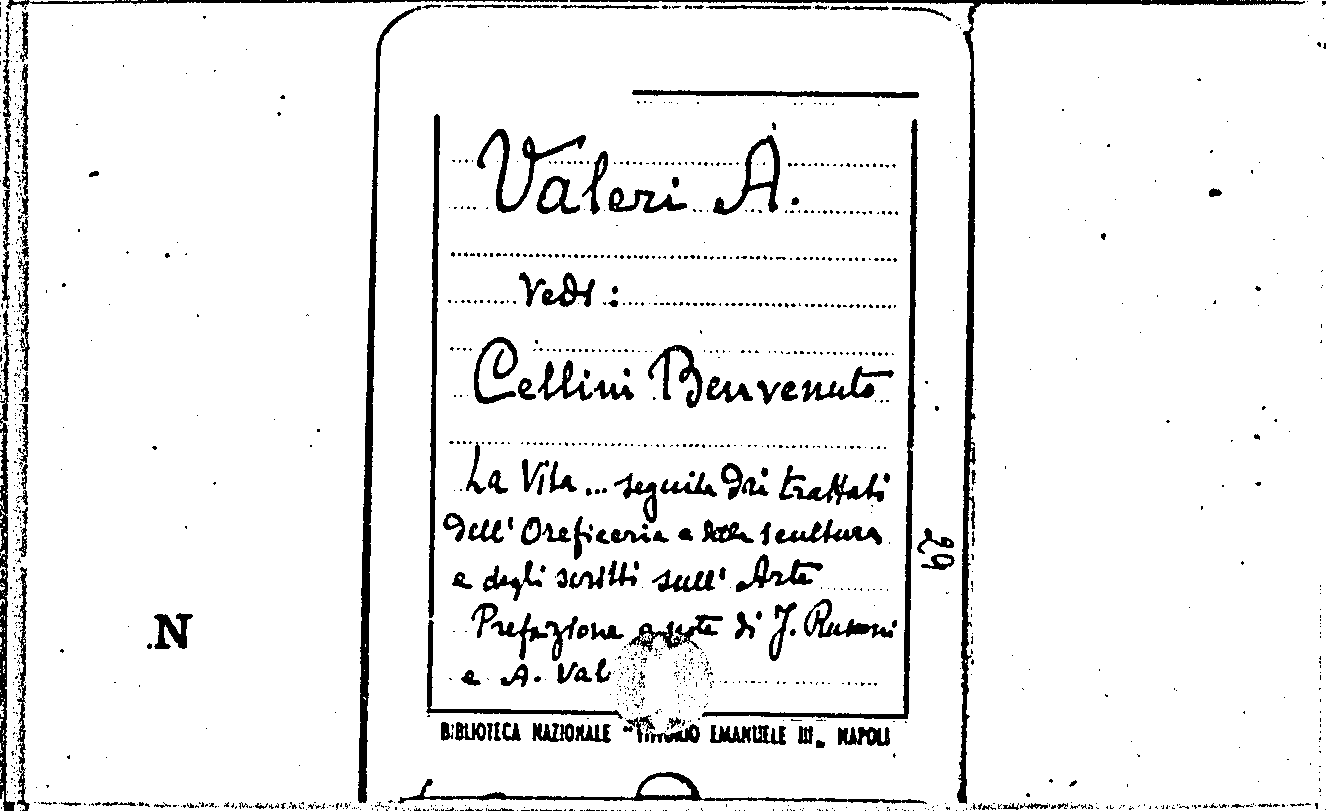 Valeri A.
Vedi :
Cellini Benvenuto
La Vita ... seguita dai trattati
dell'Oreficeria e della scultura
e degli scritti sull'Arte
Prefazione e note di J. Rusconi
e A. Val
BIBLIOTECA NAZIONALE "VITTORIO EMANUELE III„ NAPOLI
29
.N